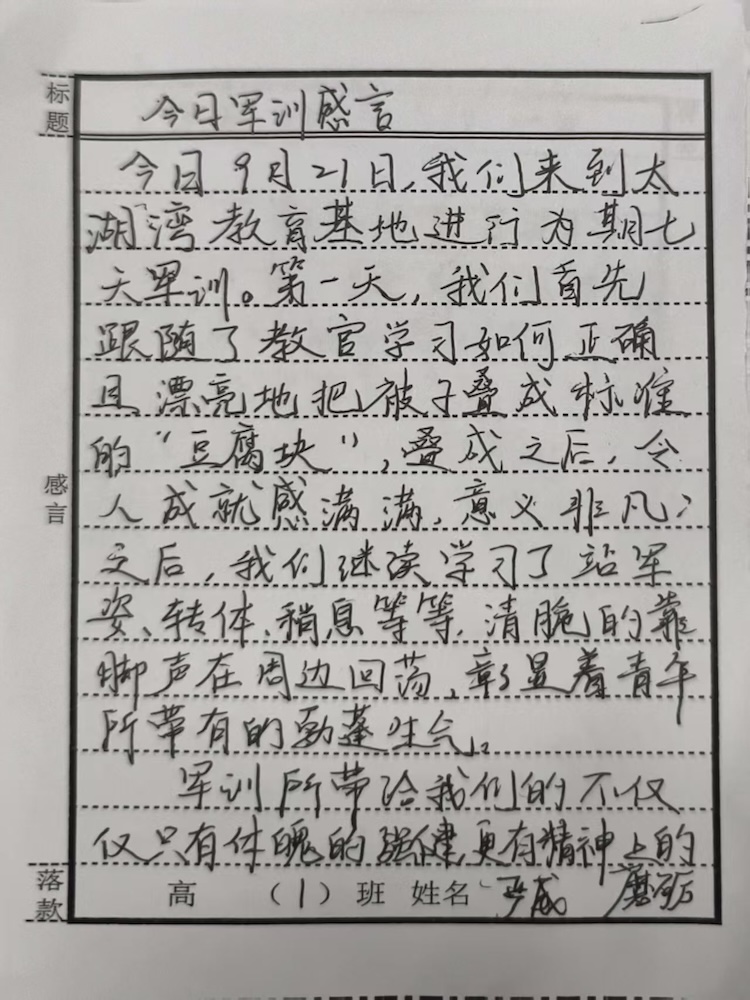 标题
今日军训感言
今日9月21日,我们来到太
湖湾教育基地进行为期七
天军训。第一天,我们首先
跟随了教官学习如何正确
且漂亮地把被子叠成标准
的“豆腐块”,叠成之后,令
人成就感满满,意义非凡;
之后,我们继续学习了站军
姿、转体、稍息等等,清脆的靠
脚声在周边回荡,彰显着青年
所带有的勃蓬生气。
军训所带给我们的不仅
仅只有体魄的强健,更有精神上的
磨砺
感言
落款
高 (1)班 姓名